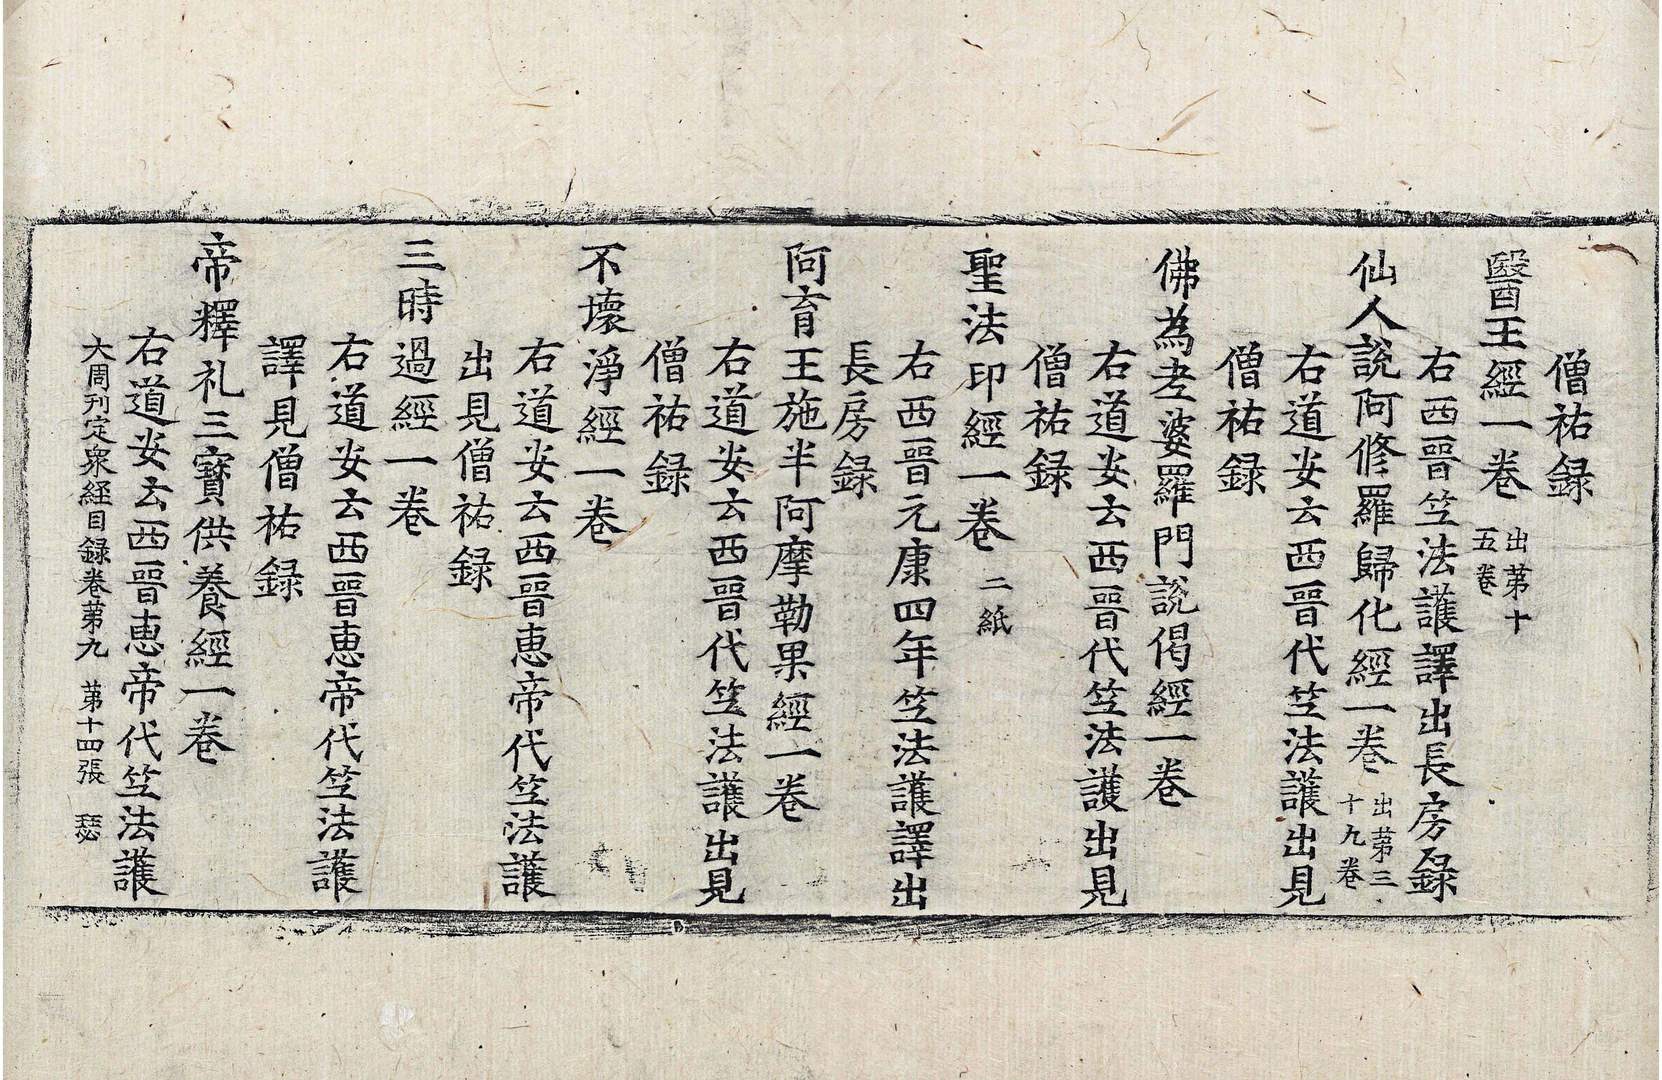 僧祐録
醫王經一卷 出苐十五卷
右西晉笁法護譯出長房録
仙人說阿修羅歸化經一卷 出苐三十九卷
右道安云西晉代笁法護出見
僧祐録
佛為老婆羅門說偈經一卷
右道安云西晉代笁法護出見
僧祐録
聖法印經一卷 二紙
右西晉元康四年笁法護譯出
長房録
阿育王施半阿摩勒果經一卷
右道安云西晉代笁法護出見
僧祐録
不壞淨經一卷
右道安云西晉惠帝代笁法護
出見僧祐録
三時過經一卷
右道安云西晉惠帝代笁法護
譯見僧祐録
帝釋礼三寶供養經一卷
右道安云西晉惠帝代笁法護
大周刊定衆経目録卷苐九 苐十四張 瑟